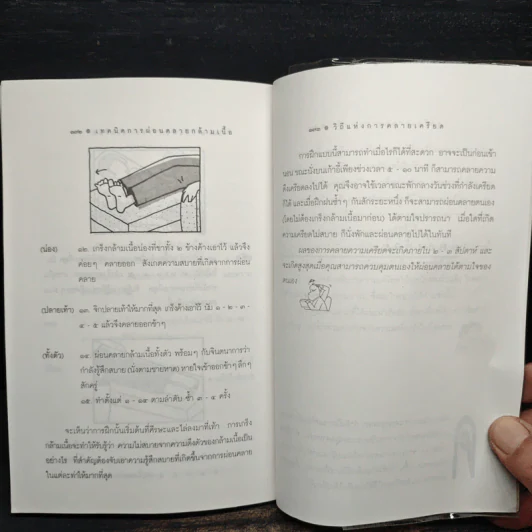 ๑๓๑ ๏ เทคนิคการผ่อนคลายกล้ามเนื้อ
(น่อง) ๑๒. เกร็งกล้ามเนื้อน่องที่ขาทั้ง ๒ ข้างค้างเอาไว้ แล้วจึง
ค่อยๆ คลายออก สังเกตความสบายที่เกิดจากการผ่อน
คลาย
(ปลายเท้า) ๑๓. จิกปลายเท้าให้มากที่สุด เกร็งค้างเอาไว้ นับ ๑ - ๒ - ๓ -
๔ - ๕ แล้วจึงคลายออกช้าๆ
(ทั้งตัว) ๑๔. ผ่อนคลายกล้ามเนื้อทั้งตัว พร้อมๆ กับจินตนาการว่า
กำลังรู้สึกสบาย (นั่งตามชายหาด) หายใจเข้าออกช้าๆ ลึกๆ
สักครู่
๑๕. ทำตั้งแต่ ๑ - ๑๔ ตามลำดับ ซ้ำ ๓ - ๔ ครั้ง
จะเห็นว่าการฝึกนั้นเริ่มต้นที่ศีรษะและไล่ลงมาที่เท้า การเกร็ง
กล้ามเนื้อจะทำให้รับรู้ว่า ความไม่สบายจากความตึงตัวของกล้ามเนื้อเป็น
อย่างไร ที่สำคัญต้องจับเอาความรู้สึกสบายที่เกิดขึ้นจากการผ่อนคลาย
ในแต่ละท่าให้มากที่สุด
๑๓๒ ๏ วิธีแห่งการคลายเครียด
การฝึกแบบนี้สามารถทำเมื่อไรก็ได้ที่สะดวก อาจจะเป็นก่อนเข้า
นอน ขณะนั่งบนเก้าอี้เพียงช่วงเวลา ๕ - ๑๐ นาที ก็สามารถคลายความ
ตึงเครียดลงไปได้ คุณจึงอาจใช้เวลาขณะพักกลางวันช่วงที่กำลังเครียด
ก็ได้ และเมื่อฝึกฝนซ้ำๆ กันสักระยะหนึ่ง ก็จะสามารถผ่อนคลายตนเอง
(โดยไม่ต้องเกร็งกล้ามเนื้อมาก่อน) ได้ตามใจปรารถนา เมื่อใดที่เกิด
ความเครียดไม่สบาย ก็นั่งพักและผ่อนคลายไปได้ในทันที
ผลของการคลายความเครียดจะเกิดภายใน ๒ - ๓ สัปดาห์ และ
จะเกิดสูงสุดเมื่อคุณสามารถควบคุมตนเองให้ผ่อนคลายได้ตามใจของ
ตนเอง